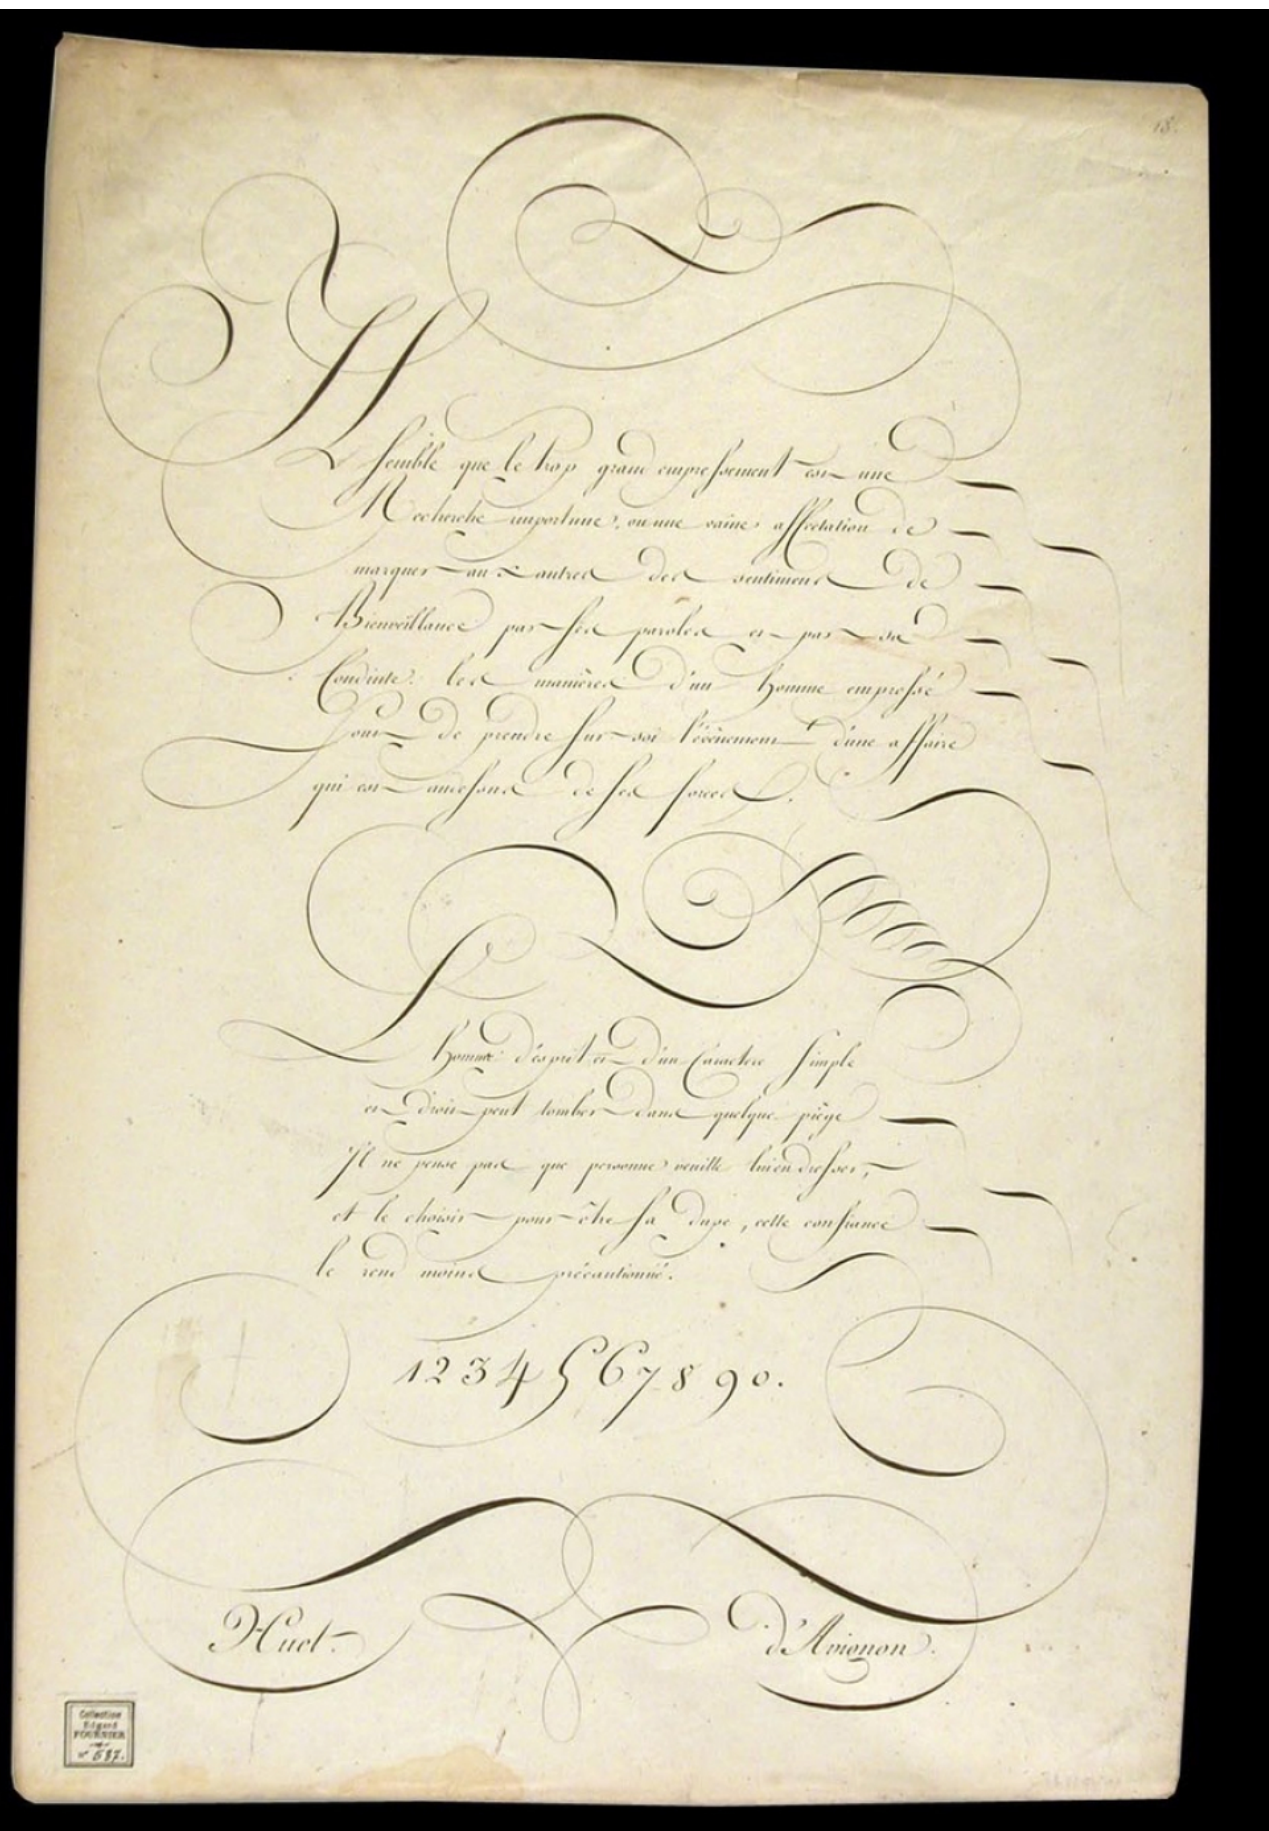 18.
Il semble que le trop grand empressement est une
Recherche importune, ou une vaine affectation de
marquer aux autres des sentimens de
Bienveillance par ses paroles et par sa
Conduite. les manières d'un homme empressé
Sont de prendre sur soi l'évènement d'une affaire
qui est audessus de ses forces.
L'homme d'esprit et d'un Caractere simple
et droit peut tomber dans quelque piège
Il ne pense pas que personne veuille lui en dresser,
et le choisir pour être sa dupe, cette confiance
le rend moins précautionné.
1234567890.
Huet. d'Avignon.
Collection
Edgard
FOURNIER
n° 587.